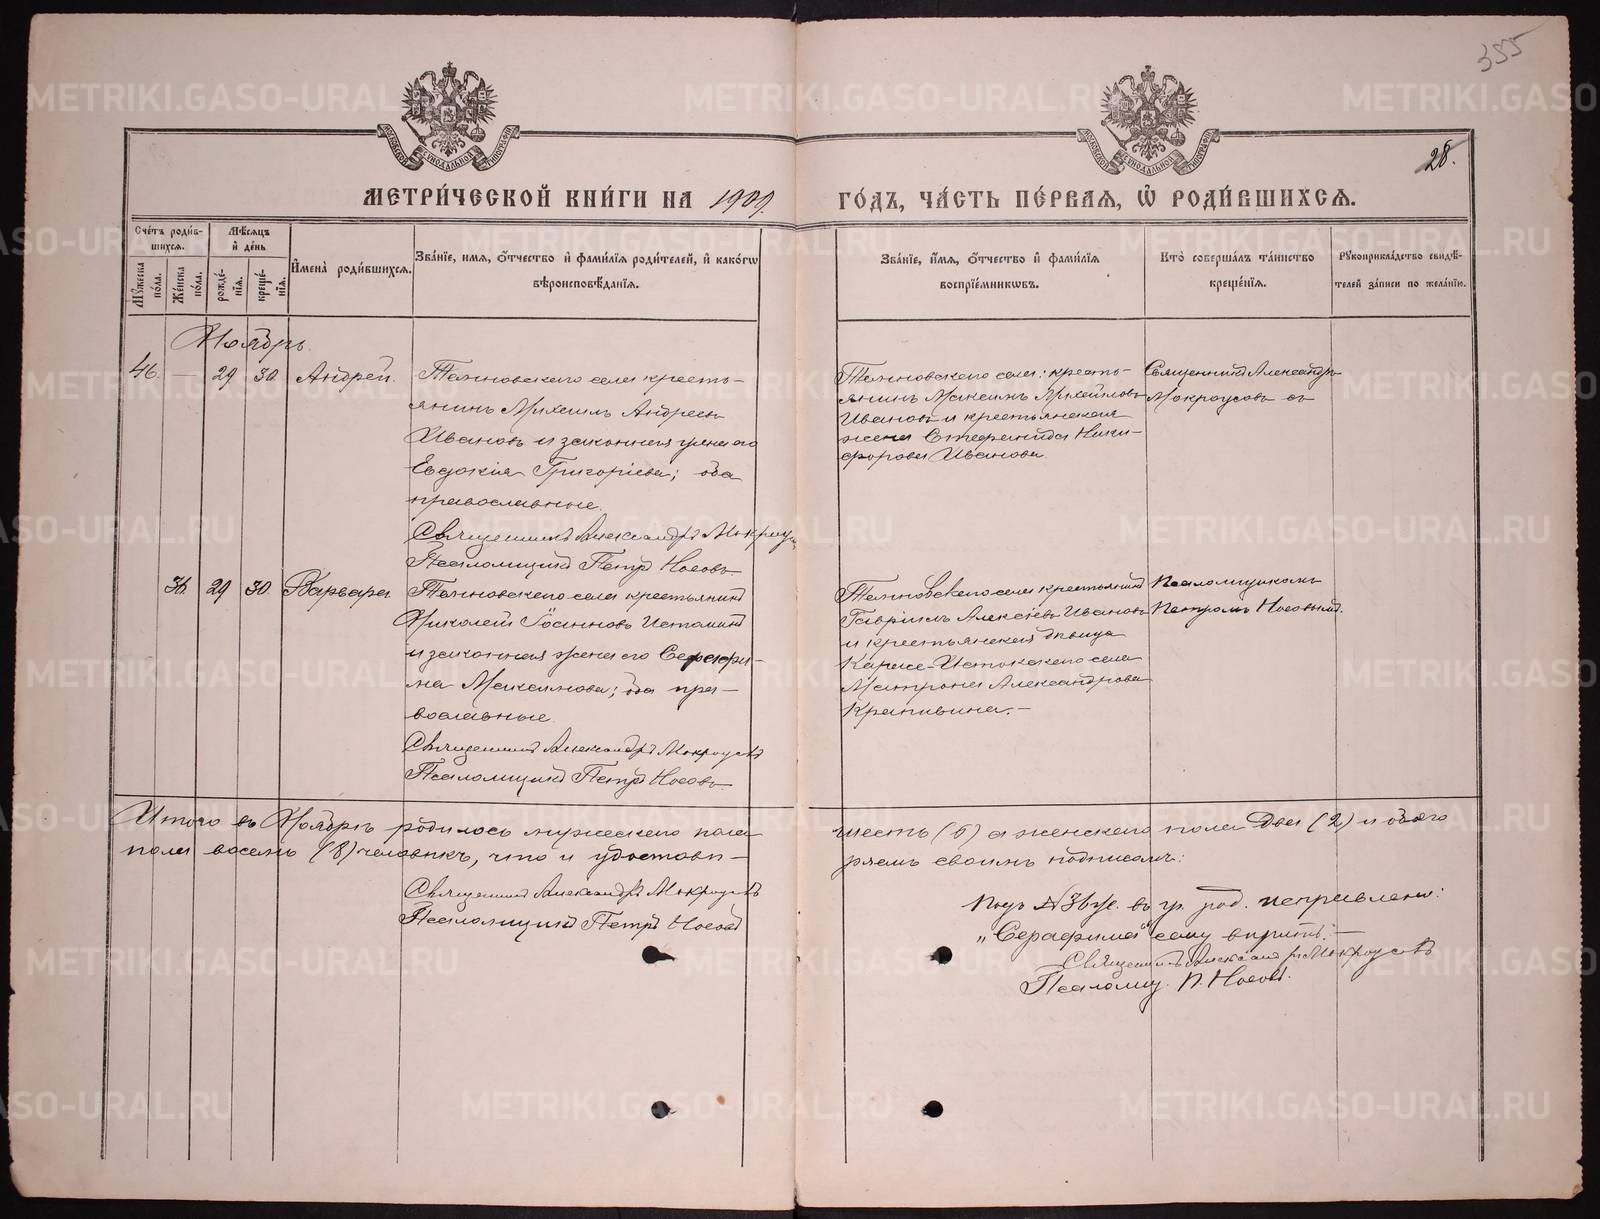 355
28.
МЕТРИ́ЧЕСКОЙ КНИ́ГИ НА 1909. ГО́ДЪ, ЧА́СТЬ ПЕ́РВАЯ, Ѡ҆ РОДИ́ВШИХСЯ.
Сче́тъ роди́в-
шихся.
Мꙋжеска по́ла.
Же́нска по́ла.
Мѣ́сяцъ
и҆ де́нь
рожде́нїя.
креще́нїя.
И҆мена̀ роди́вшихся.
Зва́нїе, и҆мя, ѻ҆́тчество и҆ фами́лїя роди́телей, и҆ како́гѡ
вѣроисповѣ́данїя.
Зва́нїе, и҆́мя, ѻ҆́тчество и҆ фами́лїя
воспрїе́мникѡвъ.
Кто̀ соверша́лъ та́инство
креще́нїя.
Рꙋкоприкла́дство свидѣ́-
телей за́писи по жела́нїю.
Ноябрь
46. — 29 30 Андрей.
Темновскаго села кресть-
янинъ Михаилъ Андреевъ
Ивановъ и законная жена его
Евдокія Григоріева; оба
православные.
Священникъ Александръ Мокроус
Псаломщикъ Петръ Носовъ.
Темновскаго села: кресть-
янинъ Максимъ Михайловъ
Ивановъ и крестьянская
жена Стефанида Ники-
форова Иванова.
Священникъ Александръ
Мокроусовъ съ
36. 29 30 Варвара
Темновскаго села крестьянинъ
Николай Іоанновъ Истоминъ
и законная жена его Серафи-
ма Максимова; оба пра-
вославные
Священникъ Александръ Мокроусовъ
Псаломщикъ Петръ Носовъ
Темновскаго села крестьянинъ
Гавріилъ Алексіевъ Ивановъ
и крестьянская дѣвица
Карасье-Истокскаго села
Матрона Александрова
Крапивина.—
Псаломщикомъ
Петромъ Носовымъ.
Итого въ Ноябрѣ родилось мужескаго пола шесть (6) а женскаго пола два (2) и обоего
пола восемь (8) человѣкъ, что и удостовѣ-ряемъ своимъ подписомъ:
Священникъ Александръ Мокроусовъ
Псаломщикъ Петръ Носовъ
Подъ № 36 въ гр. род. исправлена:
„Серафима“ сему вѣрить.—
Священникъ Александръ Мокроусовъ
Псаломщ. П. Носовъ.
METRIKI.GASO-URAL.RU